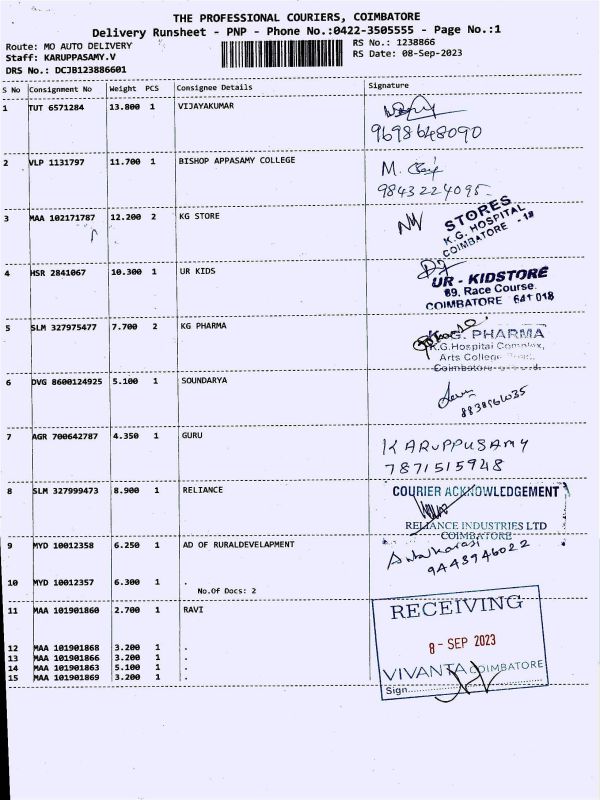 THE PROFESSIONAL COURIERS, COIMBATORE
Delivery Runsheet - PNP - Phone No.:0422-3505555 - Page No.:1
Route: MO AUTO DELIVERY
RS No.: 1238866
Staff: KARUPPASAMY.V
RS Date: 08-Sep-2023
DRS No.: DCJB123886601
S No Consignment No Weight PCS Consignee Details Signature
1 TUT 6571284 13.800 1 VIJAYAKUMAR
9698648090
2 VLP 1131797 11.700 1 BISHOP APPASAMY COLLEGE
9843224095
3 MAA 102171787 12.200 2 KG STORE
STORES
K.G. HOSPITAL
COIMBATORE - 18
4 HSR 2841067 10.300 1 UR KIDS
UR - KIDSTORE
89. Race Course.
COIMBATORE 641 018
5 SLM 327975477 7.700 2 KG PHARMA
K.G. PHARMA
K.G.Hospital Complex,
Arts College Road,
6 DVG 8600124925 5.100 1 SOUNDARYA
7 AGR 700642787 4.350 1 GURU
KARUPPUSAMY
7871515948
8 SLM 327999473 8.900 1 RELIANCE
COURIER ACKNOWLEDGEMENT
RELIANCE INDUSTRIES LTD
COIMBATORE
9 MYD 10012358 6.250 1 AD OF RURALDEVELAPMENT
9443946022
10 MYD 10012357 6.300 1 .
No.Of Docs: 2
11 MAA 101901860 2.700 1 RAVI
RECEIVING
8 - SEP 2023
VIVANTA COIMBATORE
Sign
12 MAA 101901868 3.200 1 .
13 MAA 101901866 3.200 1 .
14 MAA 101901863 5.100 1 .
15 MAA 101901869 3.200 1 .